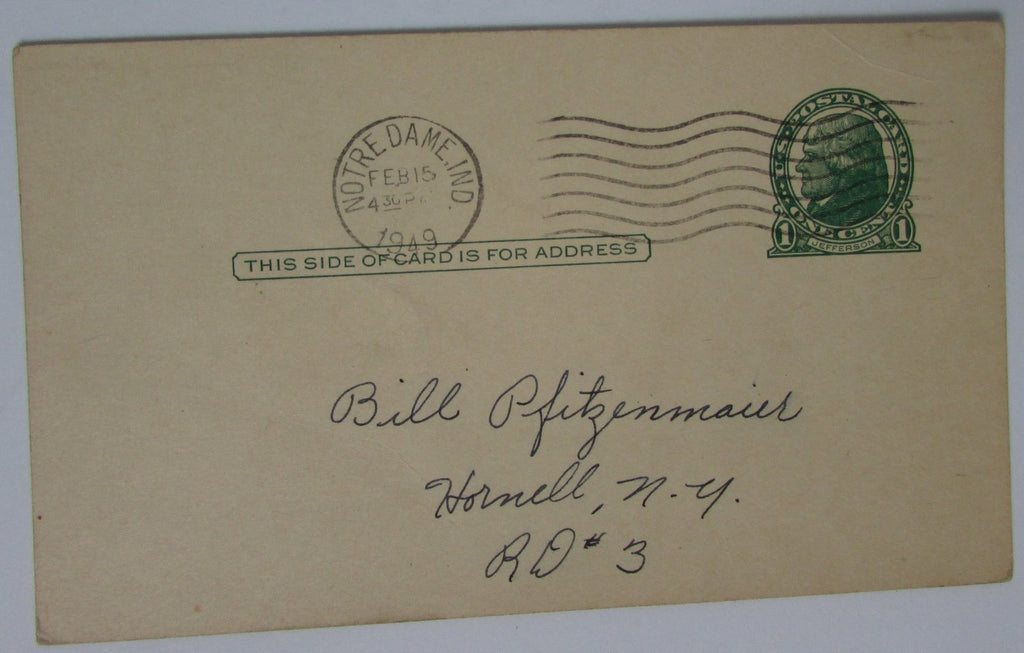 NOTRE DAME, IND.
FEB 15
4 30 P
1949
U.S. POSTAL CARD
ONE CENT
1 JEFFERSON 1
THIS SIDE OF CARD IS FOR ADDRESS
Bill Pfitzenmaier
Hornell, N.Y.
RD # 3